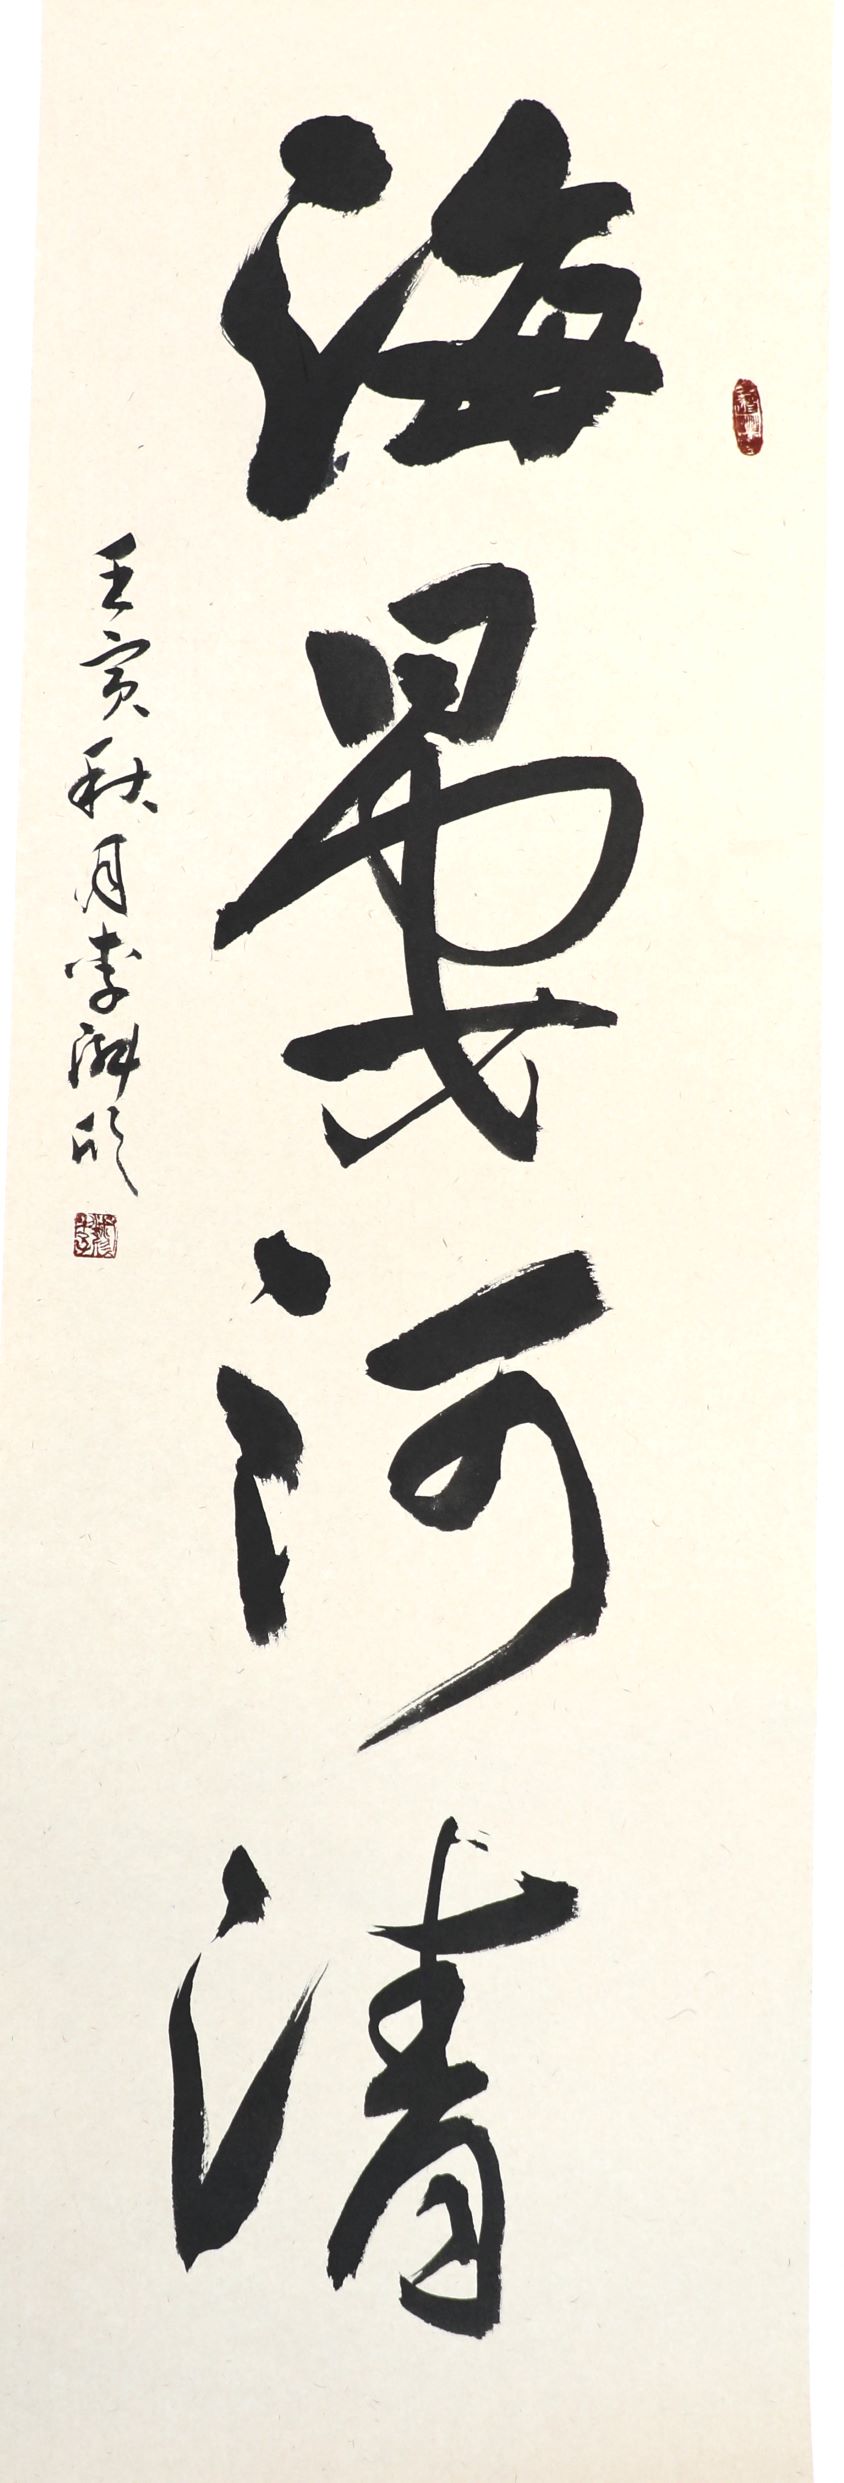 海晏河清
壬寅秋月李